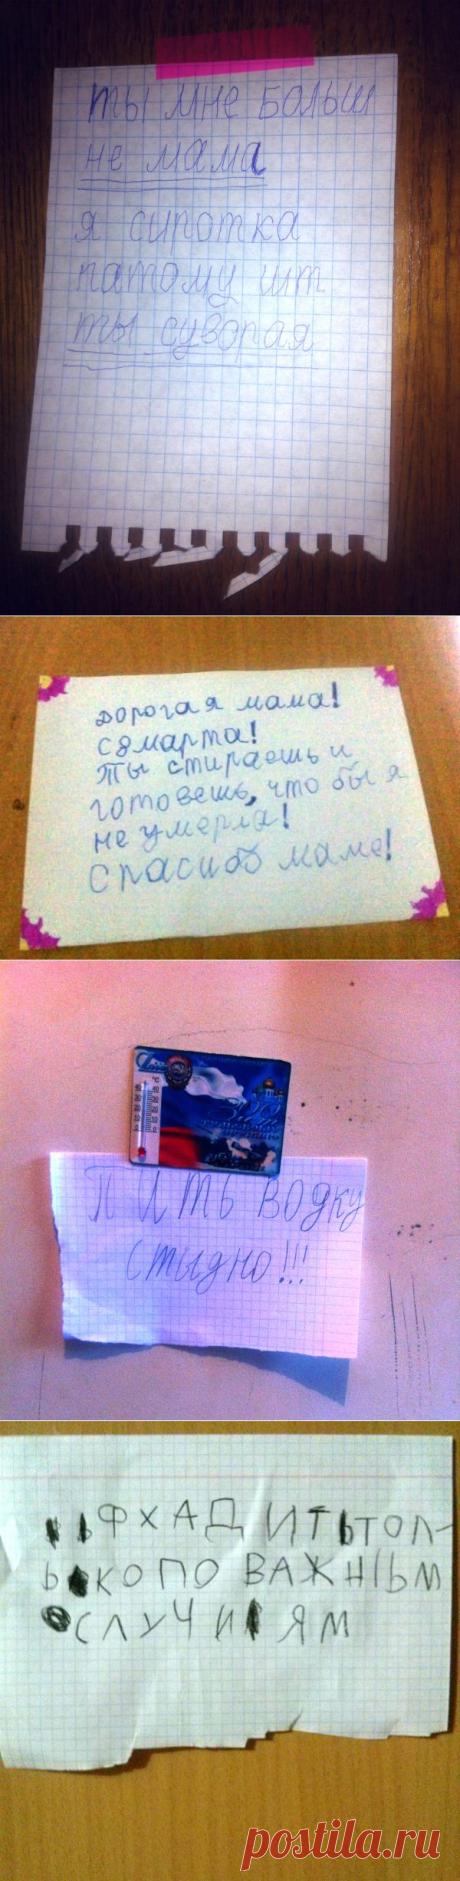 ты мне больш
не мама
я сиротка
патому шт
ты суворая
дорогая мама!
с 8 марта!
Ты стираешь и
готовешь, что бы я
не умерла!
Спасибо маме!
Пить водку
стыдно!!!
ФХАДИТЬТОЛ-
Ь КОПО ВАЖНІЬМ
СЛУЧИЯМ
postila.ru